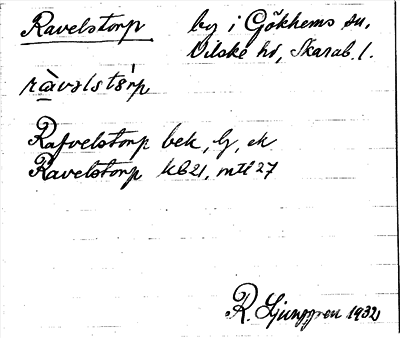 Ravelstorp by i Gökhems sn,
Vilske hd, Skarab. l.
ràvəlstórp
Rafvelstorp bek, lj, ek
Ravelstorp kb21, mtl 27
R. Ljunggren 1932